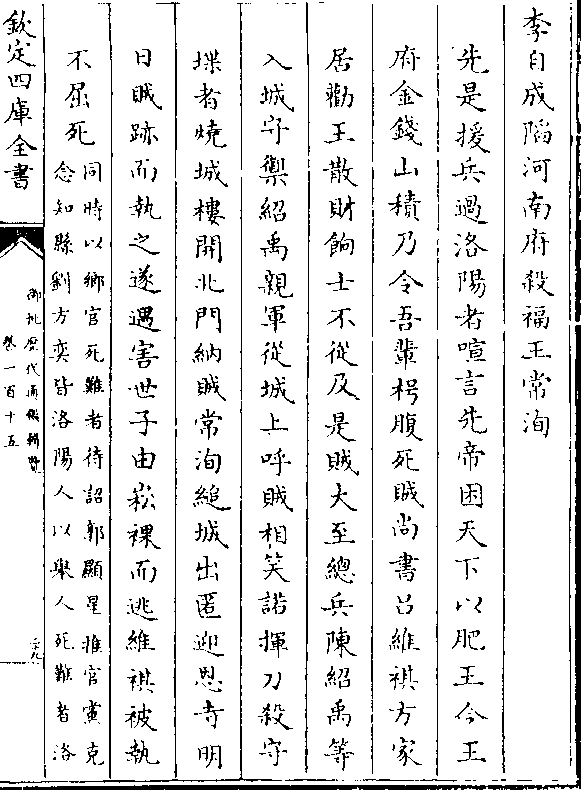 李自成陷河南府殺福王常洵
先是援兵過洛陽者喧言先帝困天下以肥王今王
府金錢山積乃令吾輩枵腹死賊尚書吕維祺方家
居勸王散財餉士不從及是賊大至總兵陳紹禹等
入城守禦紹禹親軍從城上呼賊相笑諾揮刀殺守
堞者燒城樓開北門納賊常洵縋城出匿迎恩寺明
日賊跡而執之遂遇害世子由崧裸而逃維祺被執
不屈死
同時以鄉官死難者待詔郭顯星推官黨克
念知縣劉方奕皆洛陽人以舉人死難者洛
欽定四庫全書
御批歷代通鑑輯覽
卷一百十五
二十九